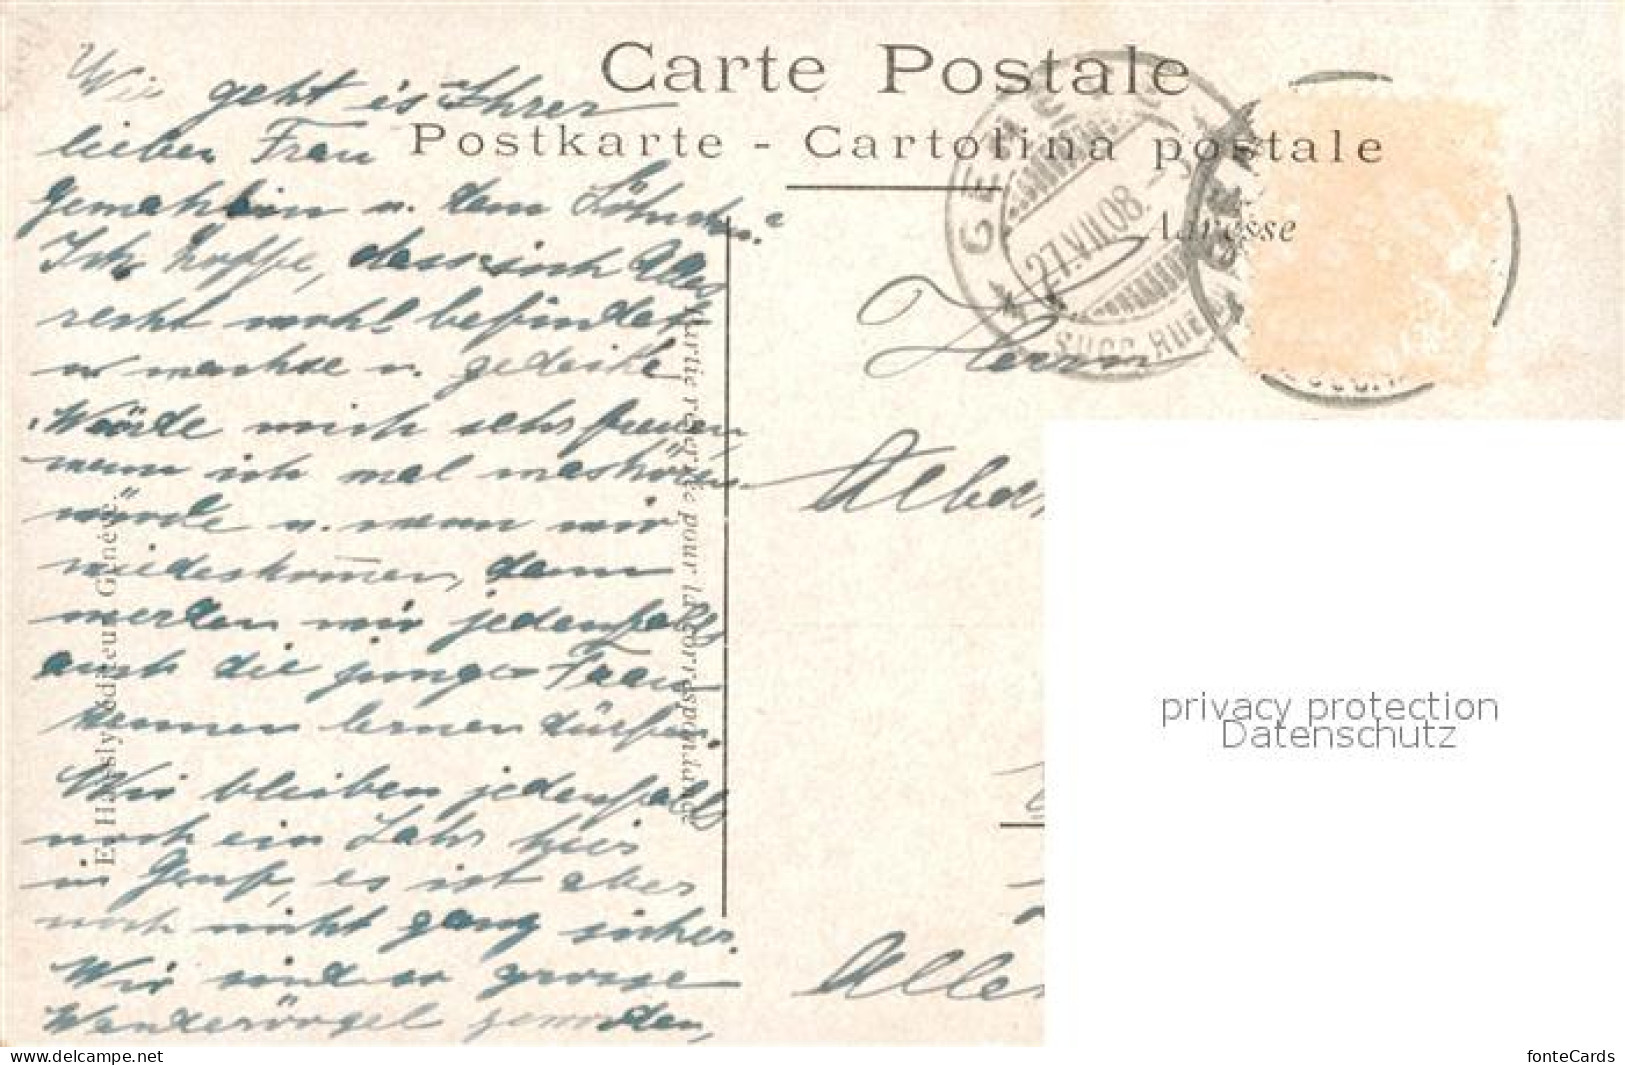 Carte Postale
Postkarte - Cartolina postale
Adresse
Wie geht es Ihrer
lieben Frau
Gemahlin u. dem Söhnchen?
Ich hoffe, dass sich Alles
recht wohl befindet
u. wachse u. gedeihe
Würde mich sehr freuen,
wenn ich mal was hören
würde u. wenn wir
wiederkommen, dann
werden wir jedenfalls
auch die junge Frau
kennen lernen dürfen.
Wir bleiben jedenfalls
noch ein Jahr hier
in Genf, es ist aber
noch nicht ganz sicher.
Wir sind so grosse
Wandervögel geworden,
Partie réservée pour la correspondance
éditeur Genève.
GENÈVE
27.VII.08.
SUCC. RUE
Herrn
Alle
privacy protection
Datenschutz
www.delcampe.net
fonteCards